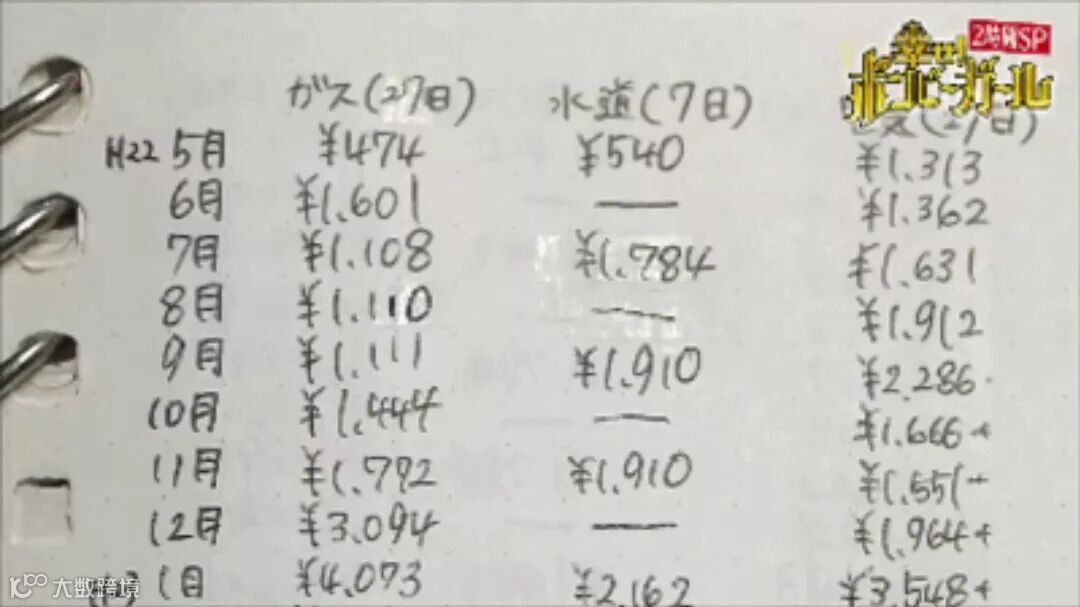 2時間SP
幸せ!
ボンビーガール
ガス(27日) 水道(7日) 気(27日)
H22 5月 ¥474 ¥540 ¥1.313
6月 ¥1.601 — ¥1.362
7月 ¥1.108 ¥1.784 ¥1.631
8月 ¥1.110 — ¥1.912
9月 ¥1.111 ¥1.910 ¥2.286
10月 ¥1.444 — ¥1.666
11月 ¥1.792 ¥1.910 ¥1.551
12月 ¥3.094 — ¥1.964
1月 ¥4.073 ¥2.162 ¥3.548
大数跨境